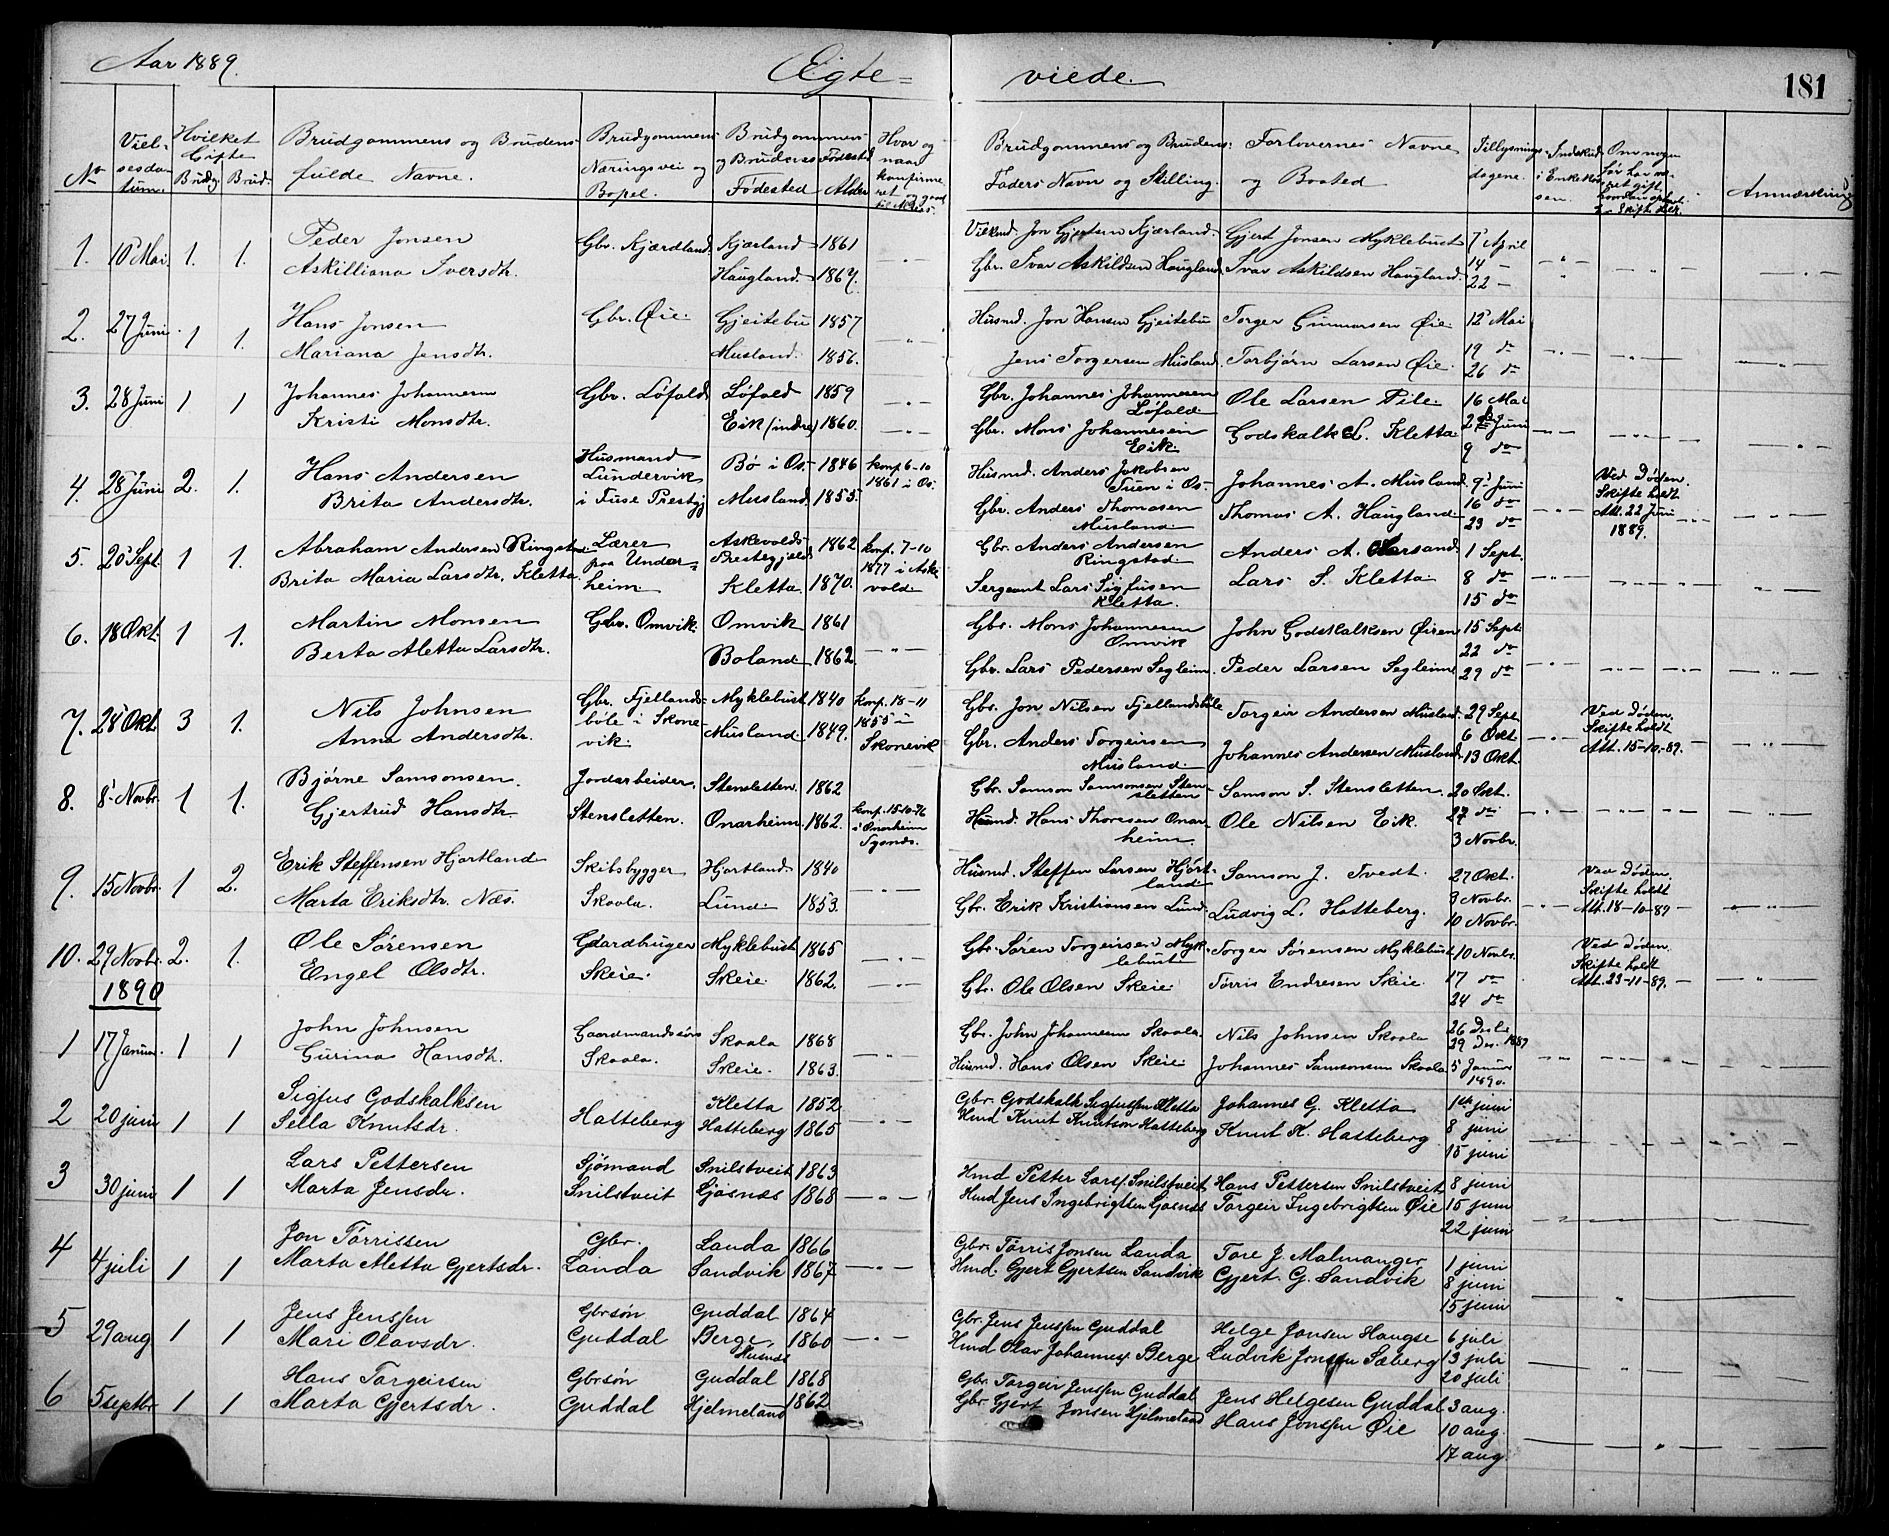 Aar 1889.
Ægte=
viede.
181
No
Vielsesdatum
Hvilket Gifte
Brudg. Brud.
Brudgommens og Brudens fulde Navne.
Brudgommens Næringsvei og Bopel.
Brudgommens og Brudens Fødested
Fødested Alder
Hvor og naar konfirmeret
Brudgommens og Brudens Faders Navn og Stilling.
Forlovernes Navne og Bosted
Tillysnings dagene.
Indskud i Enkekassen.
Om nogen før har været gift
Anmærkning
1. 10 Mai. 1. 1. Peder Jonsen Gbr. Kjærland Kjærland 1861 Jon Gjertsen Kjærland. Gjert Jonsen Myklebust 7 April
Askilliana Iversdtr. Haugland 1867. Gbr. Ivar Askildsen Haugland Ivar Askildsen Haugland. 14 —
22 —
2. 27 Juni 1 1. Hans Jonsen Gbr. Øie. Gjeitebu 1857 Husmd. Jon Hansen Gjeitebu Torger Gunnarsen Øie 12 Mai
Mariana Jensdtr. Musland. 1856. Jens Torgersen Musland. Torbjørn Larsen Øie. 19 do
26 do
3. 28 Juni 1 1 Johannes Johannesen Gbr. Løfald Løfald 1859 Gbr. Johannes Johannesen Løfald Ole Larsen Pile 16 Mai
Kristi Monsdtr. Eik (indre) 1860. Gbr. Mons Johannesen Eik Godskalk L. Kletta 2 Juni
9 do
4. 28 Juni 2. 1. Hans Andersen Husmand Lundervik i Fuse Prestgj. Bø i Os. 1846 konf 6-10 1861 i Os. Husmd. Anders Jakobsen Tuen i Os. Johannes A. Musland 9 Juni Ved Døden. Skifte holdt Att. 22 Juni 1889.
Brita Andersdtr. Musland 1855. Gbr. Anders Thomasen Musland Thomas A. Haugland 16 do
23 do
5. 20 Sept. 1 1. Abraham Andersen Ringstad Lærer paa Undarheim Askevolds Prestegjeld 1862 konf. 7-10 1877 i Askevold Gbr. Anders Andersen Ringstad Anders A. 1 Sept.
Brita Maria Larsdtr. Kletta Kletta 1870. Sergeant Lars Sigfusen Kletta. Lars S. Kletta 8 do
15 do
6. 18 Okt. 1 1. Martin Monsen Gbr. Omvik. Omvik 1861 Gbr. Mons Johannesen Omvik John Godskalksen Øiren 15 Sept.
Berta Aletta Larsdtr. Boland 1862. Gbr. Lars Pedersen Segleim. Peder Larsen Segleim 22 do
29 do
7. 28 Okt 3 1. Nils Johnsen Gbr. Fjellandsbøle i Skonevik. Myklebust 1840 konf. 18-11 1855 i Skonevik Gbr. Jon Nilsen Fjellandsbøle Torgeir Andersen Musland 29 Sept. Ved Døden, Skifte holdt Att. 15-10-89.
Anna Andersdtr. Musland 1849. Gbr. Anders Torgeirsen Musland Johannes Andersen Musland 6 Okt
13 Okt.
8. 8 Novbr. 1 1. Bjørne Samsonsen. Jordarbeider. Stensletten. 1862 Gbr. Samson Samsonsen Stensletten Samson S. Stensletten. 20 Okt.
Gjertrud Hansdtr Stensletten. Onarheim. 1862. konf. 15-10-76 i Onarheim Tysnes. Husmd. Hans Thoresen Onarheim. Ole Nilsen Eik. 27 do
3 Novbr.
9. 15 Novbr. 1 2. Erik Steffensen Hjortland Skibsbygger Hjortland 1840 Husmd. Steffen Larsen Hjortland Samson J. Tvedt. 27 Okt. Ved Døden. Skifte holdt Att. 18-10-89
Marta Eriksdtr. Næs. Skaala. Lund. 1853. Gbr. Erik Kristiansen Lund. Ludvig L. Hatteberg. 3 Novbr.
10 Novbr.
10. 29 Novbr. 2. 1. Ole Sørensen Gaardbruger Myklebust 1865 Gbr. Søren Torgeirsen Myklebust Torger Sørensen Myklebust 10 Novbr. Ved Døden. Skifte holdt Att. 23-11-89.
Engel Olsdtr. Skeie. Skeie. 1862. Gbr. Ole Olsen Skeie Tørris Endresen Skeie 17 do
24 do
1890
1 17 Januar. 1 1 John Johnsen Gaardmandssøn Skaala 1868 Gbr. John Johannesen Skaala. Nils Johnsen Skaala 26 Desb.
Gurina Hansdtr. Skaala. Skeie. 1863. Husmd. Hans Olsen Skeie Johannes Samsonsen Skaala 29 Des. 1889
5 Januar 1890.
2 20 juni 1 1 Sigfus Godskalksen Hatteberg Kletta 1852 Gbr. Godskalk Sigfussen Kletta Johannes G. Kletta 1ste juni
Sella Knutsdr. Hatteberg 1865 Hmd Knut Knutson Hatteberg Knut K. Hatteberg 8 juni
15 juni
3 30 juni 1 1 Lars Pettersen Sjømand Snilstveit 1863 Hmd Petter Larss. Snilstveit Hans Pettersen Snilstveit 8 juni
Marta Jensdr. Snilstveit Gjøsnes 1868 Hmd Jens Ingebrigtsen Gjøsnes Torgeir Ingebrigtsen Øie 15 juni
22 juni
4 4 juli 1 1 Jon Tørrissen Gbr. Landa 1866 Gbr. Tørris Jonsen Landa Tore J. Malmanger 1 juni
Marta Aletta Gjertsdr. Landa Sandvik 1867 Hmd. Gjert Gjertsen Sandvik Gjert. G. Sandvik 8 juni
15 juni
5 29 aug 1 1 Jens Jenssen Gbrsøn Guddal 1864 Gbr. Jens Jenssen Guddal Helge Jonsen Haugse 6 juli
Mari Olavsdr. Guddal Berge, Husnes 1860 Hmd Olav Johanness. Berge Ludvik Jonssen Sæberg 13 juli
20 juli
6 5 septbr 1 1 Hans Torgeirsen Gbrsøn Guddal 1868 Gbr. Torgeir Jenssen Guddal Jens Helgesen Guddal 3 aug.
Marta Gjertsdr. Guddal Hjelmeland 1862 Gbr. Gjert Jonsen Hjelmeland Hans Jonssen Øie 10 aug.
17 aug.